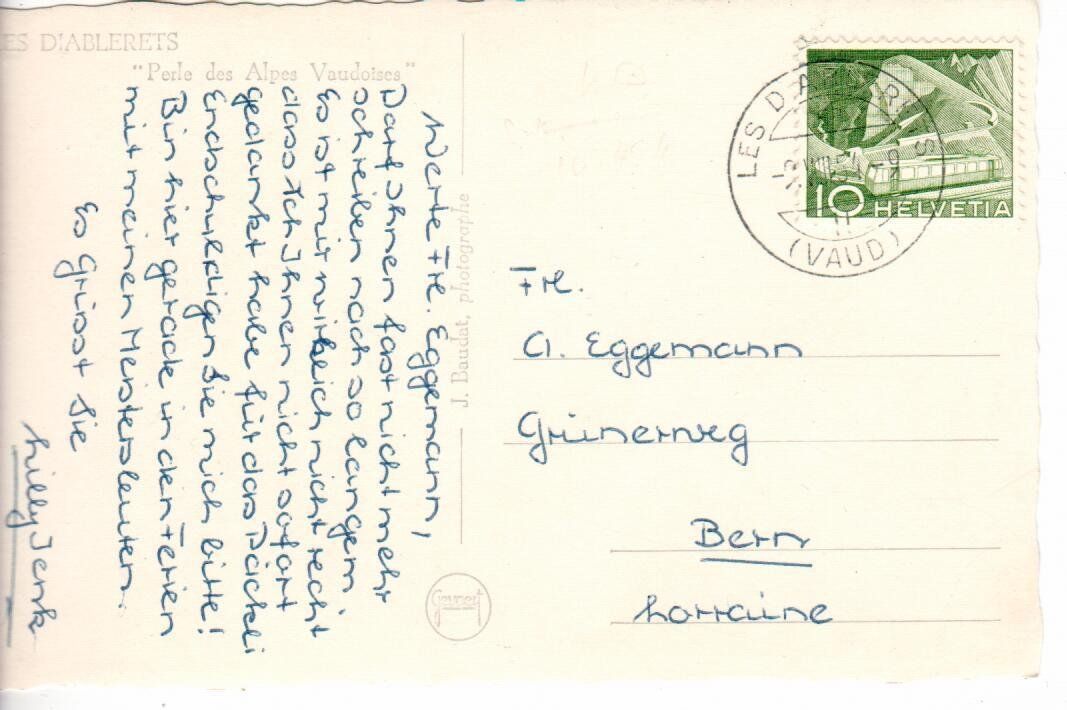 LES DIABLERETS
"Perle des Alpes Vaudoises"
Werte Frl. Eggemann,
Darf Ihnen fast nicht mehr
schreiben nach so langem.
Es ist mir wirklich nicht recht
dass Ich Ihnen nicht sofort
gedankt habe für das Päckli
Entschuldigen Sie mich bitte!
Bin hier gerade in den Ferien
mit meinen Meistersleuten.
Es Grüsst Sie
Lilly Jenk
J. Baudat, photographe
Gevaert
LES DIABLERETS
(VAUD)
10 HELVETIA
Frl.
A. Eggemann
Grünerweg
Bern
Lorraine